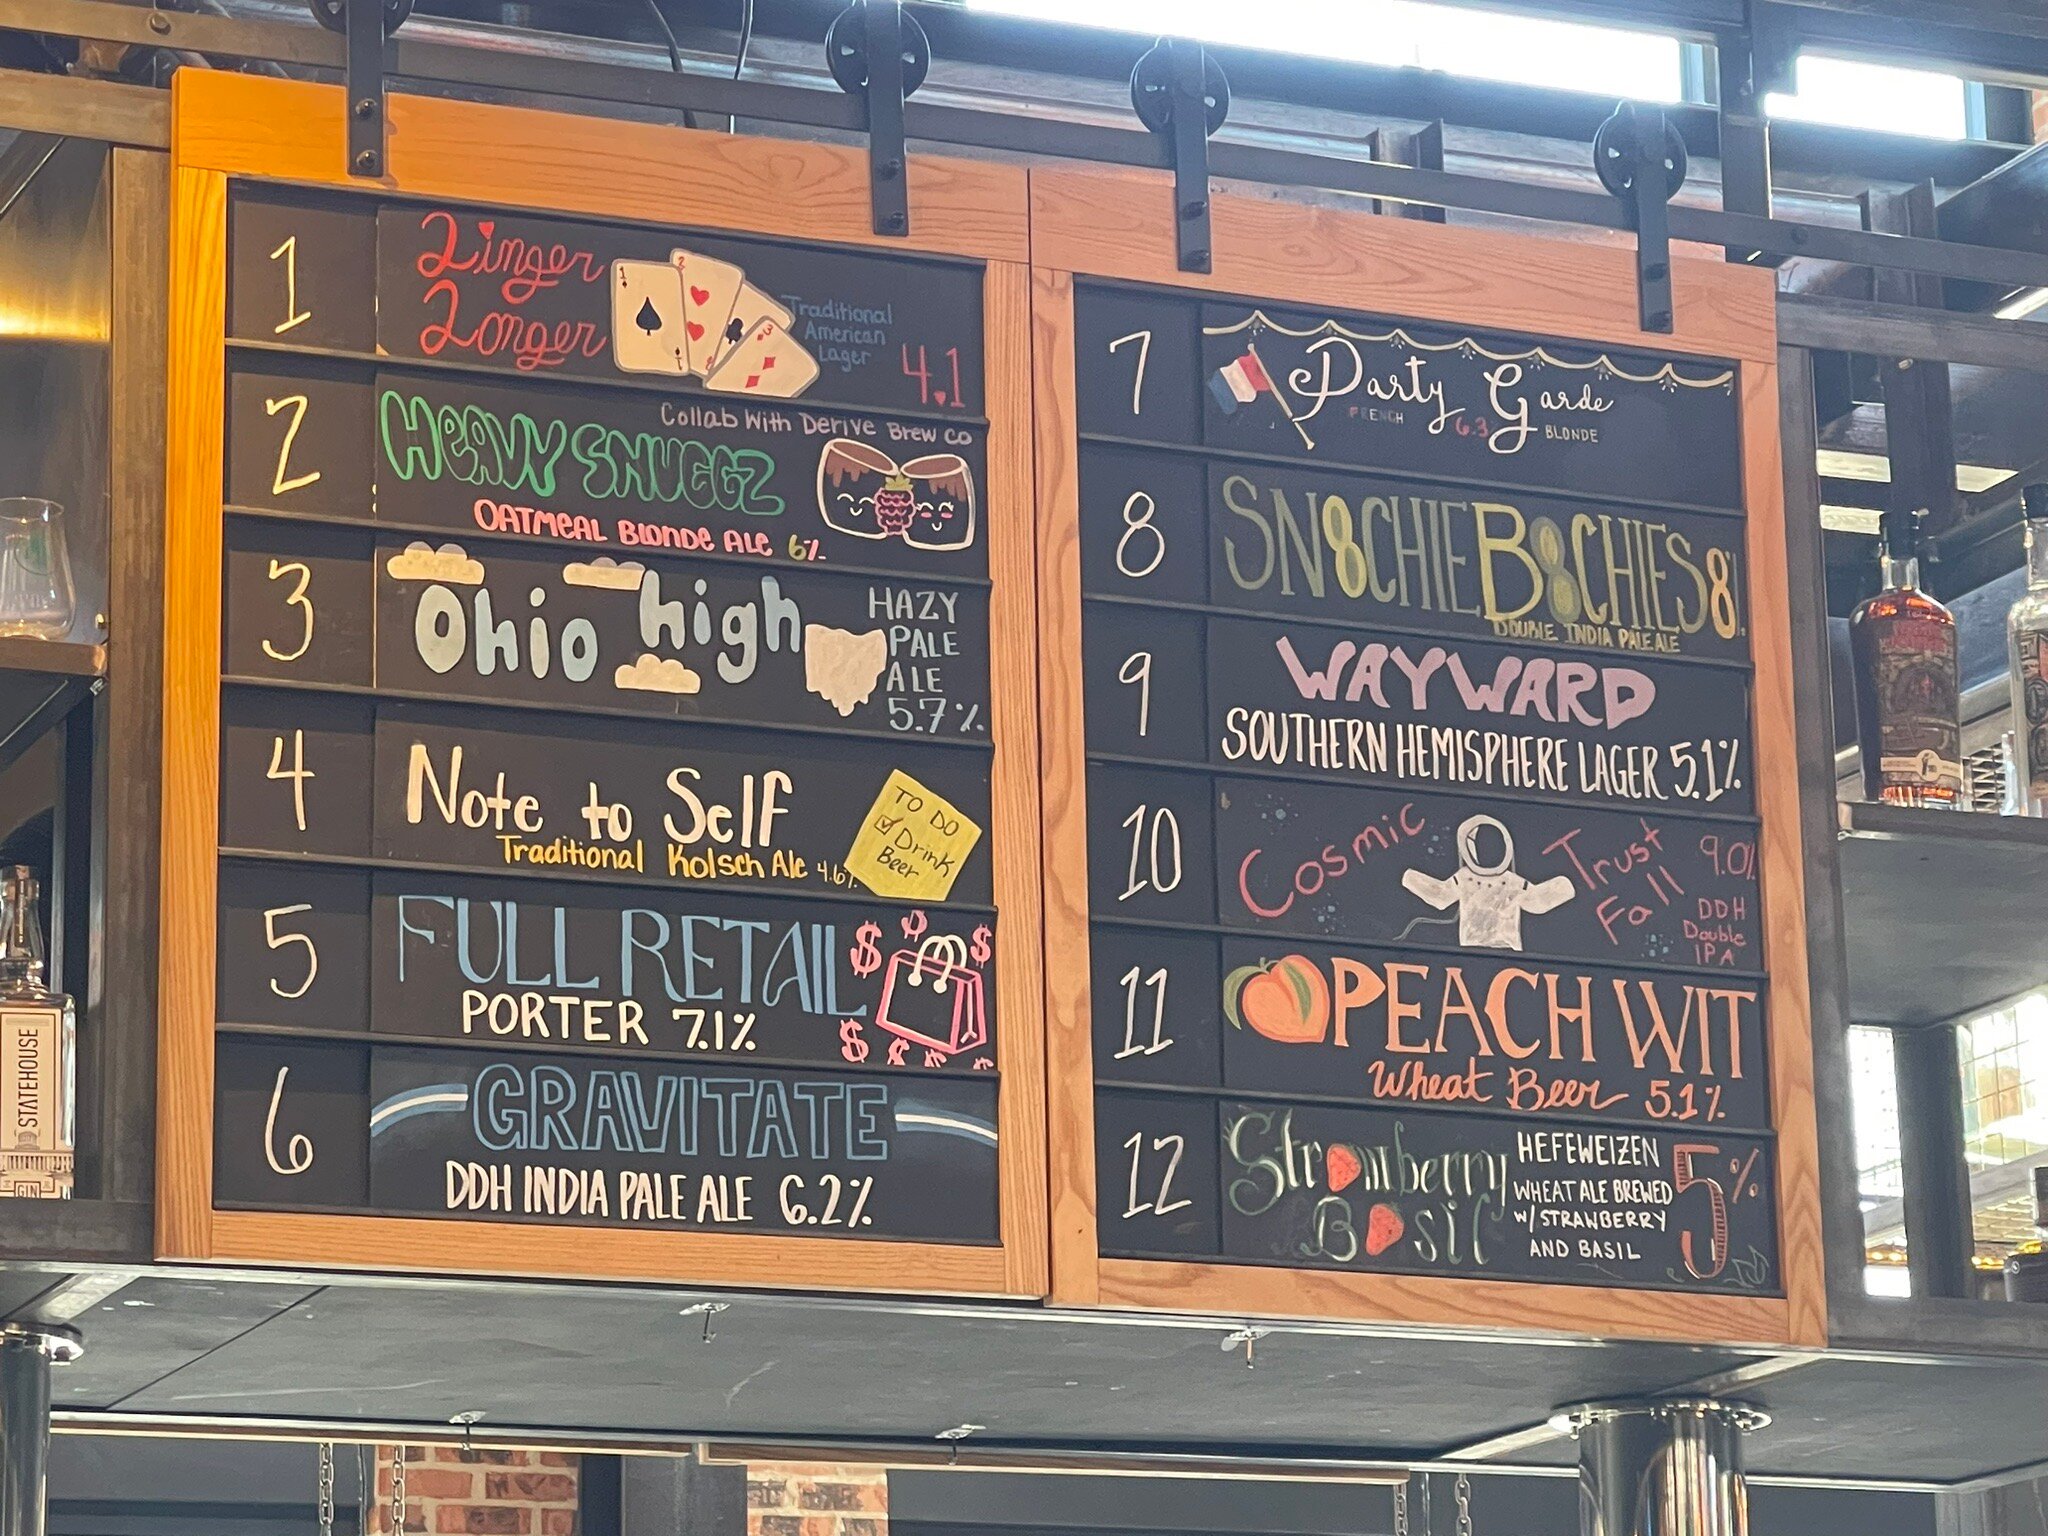 1
Linger
Longer
Traditional
American
Lager
4.1
2
Collab With Derive Brew Co
HEAVY SNUGGZ
OATMEAL BLONDE ALE 6%
3
Ohio high
HAZY
PALE
ALE
5.7%
4
Note to Self
Traditional Kolsch Ale 4.6%
TO DO
Drink
Beer
5
FULL RETAIL
PORTER 7.1%
6
GRAVITATE
DDH INDIA PALE ALE 6.2%
7
Party Garde
FRENCH 6.3 BLONDE
8
SN8CHIE B8CHIES 8%
DOUBLE INDIA PALE ALE
9
WAYWARD
SOUTHERN HEMISPHERE LAGER 5.1%
10
Cosmic
Trust
Fall
9.0%
DDH
Double
IPA
11
PEACH WIT
Wheat Beer 5.1%
12
Strawberry
Basil
HEFEWEIZEN
WHEAT ALE BREWED
W/ STRAWBERRY
AND BASIL
5%
STATEHOUSE
GIN